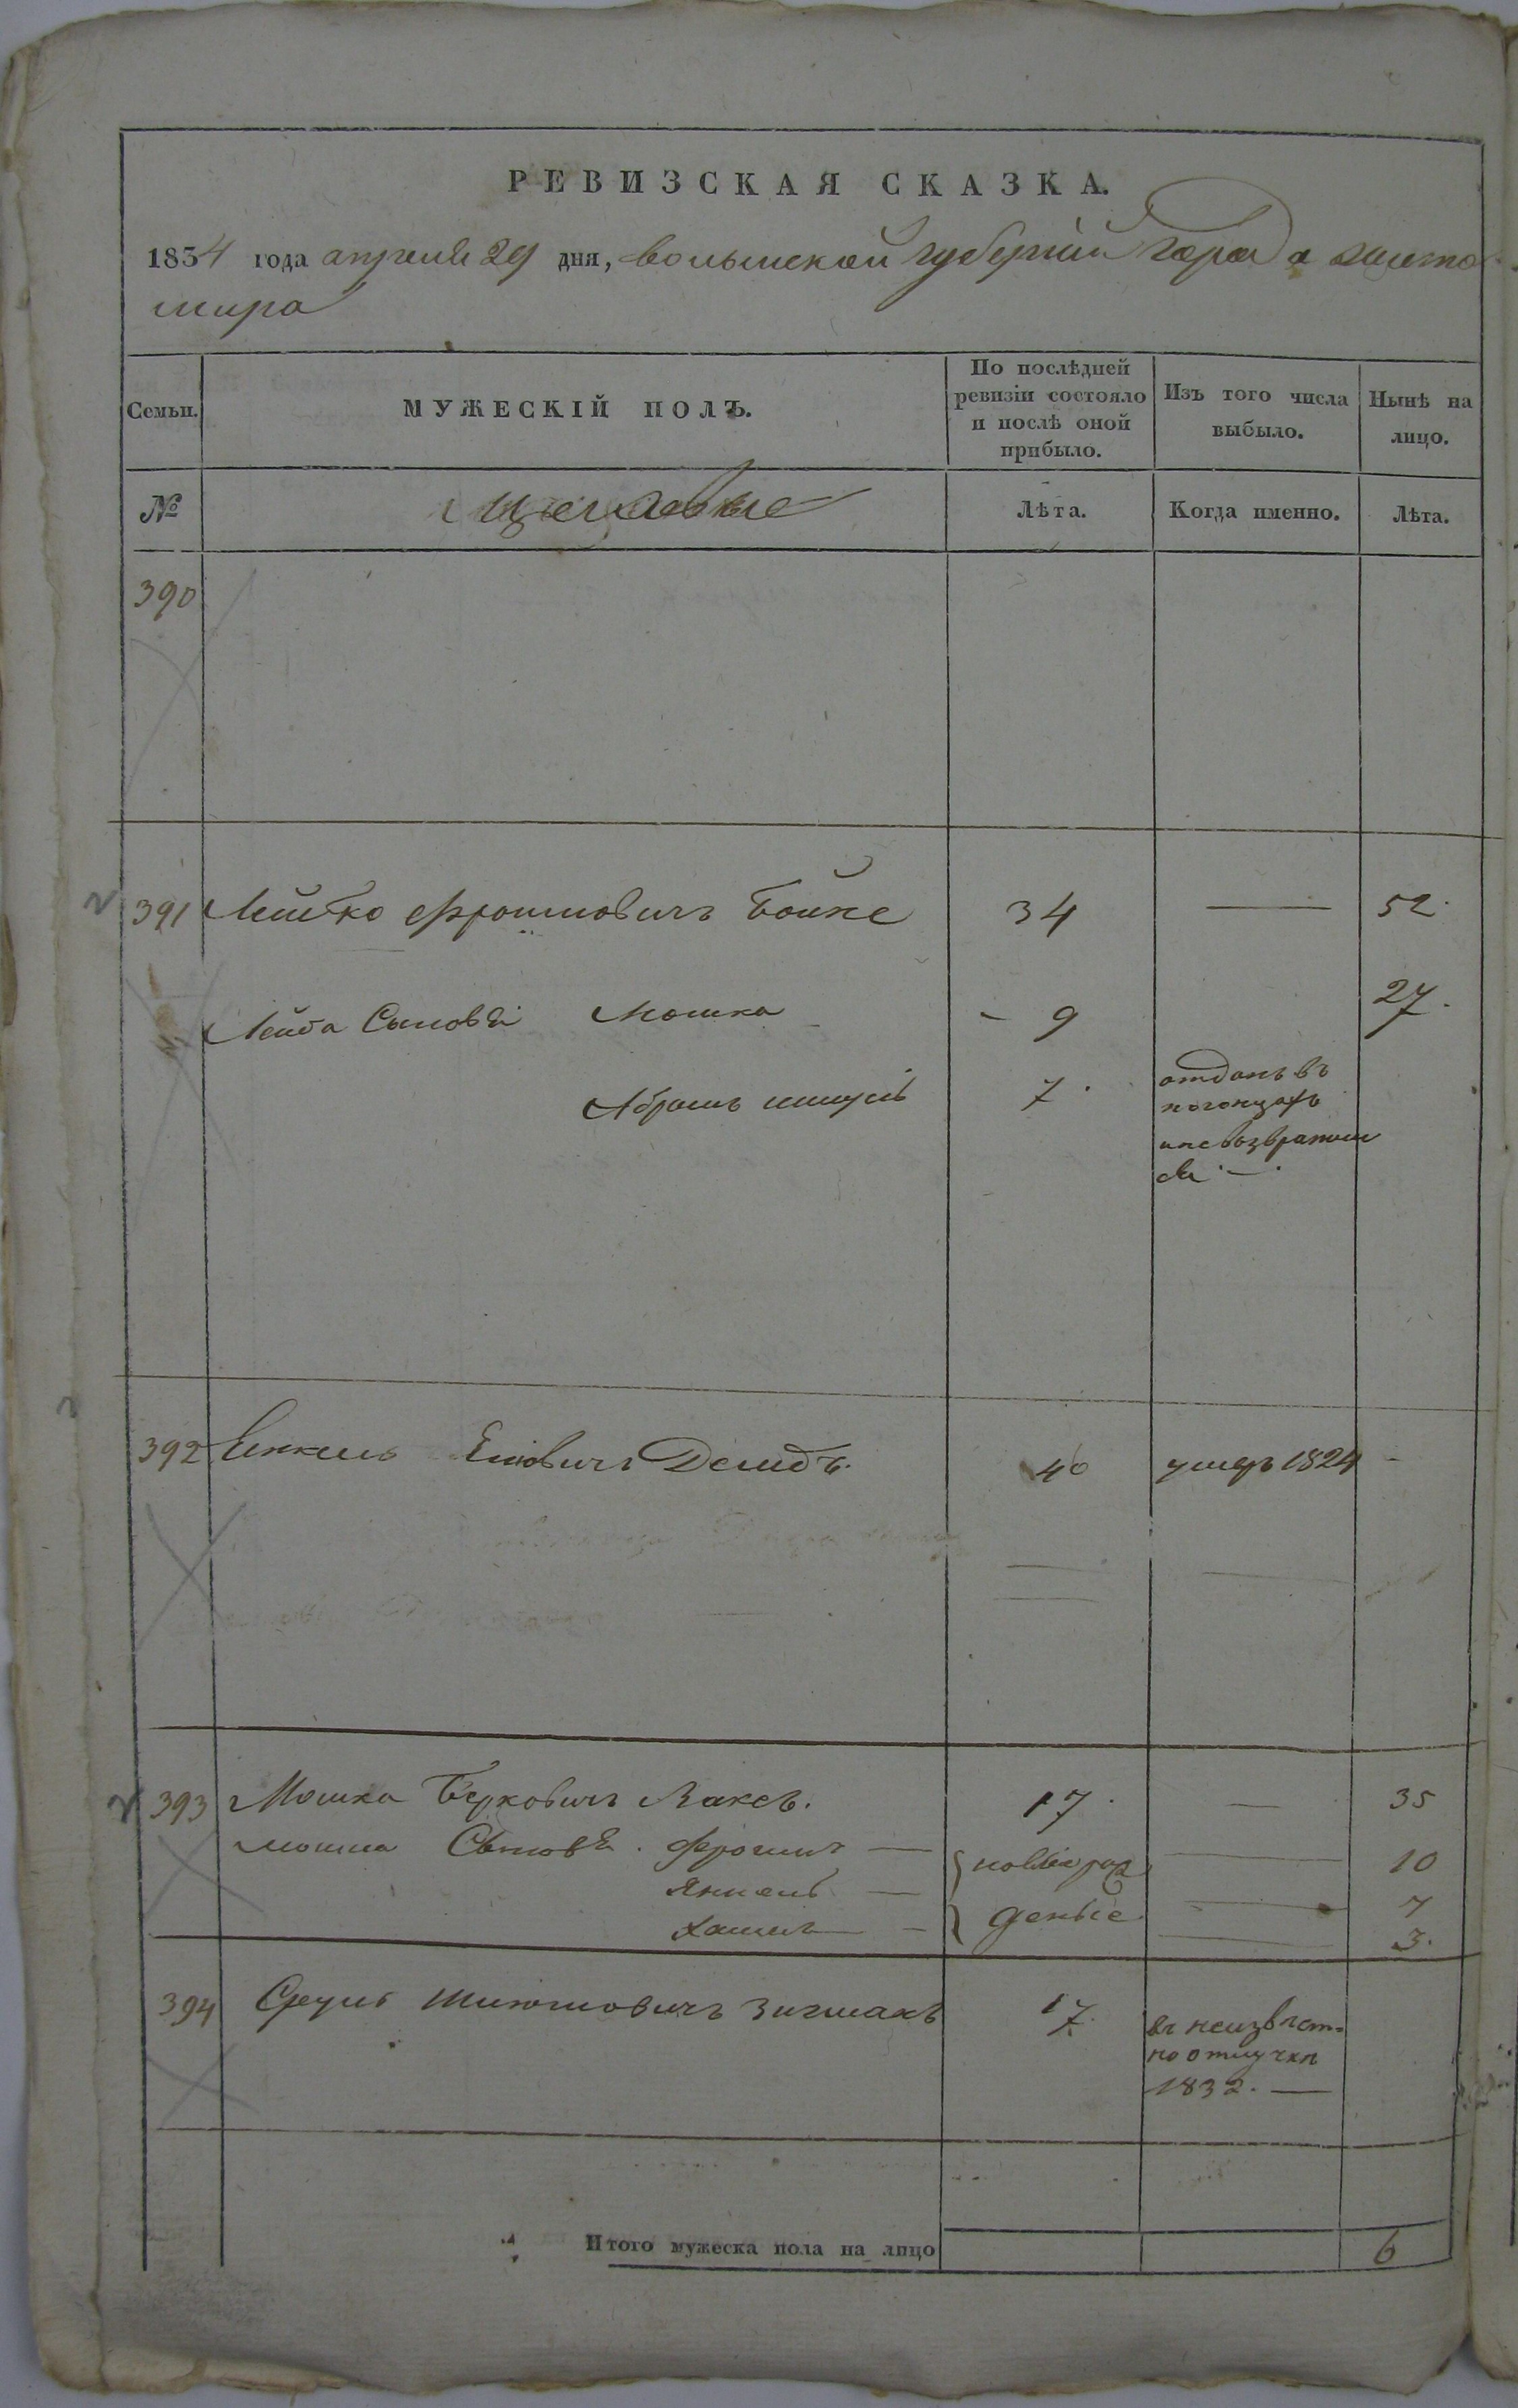 РЕВИЗСКАЯ СКАЗКА.
1834 года апреля 29 дня, волынской губернии города жито
мира
Семьи. МУЖЕСКІЙ ПОЛЪ. По послѣдней ревизіи состояло и послѣ оной прибыло. Изъ того числа выбыло. Нынѣ на лицо.
№ Лѣта. Когда именно. Лѣта.
390
391 Лейбко Фроимовичъ Бойке 34 — 52
Лейба Сыновья Мошка 9 27.
Абрамъ 7 отданъ въ
погонцахъ
и не возврати
ся
392 Енкель Демидъ. 40 умеръ 1824 -
393 Мошка Берковичъ Заксъ. 17. — 35
мошка Сыновья. Фроимъ — новорож — 10
Янкель — — 7
Хаимъ — деные — 3.
394 Сруль Шиомовичъ Зигмахъ 17 въ неизвест-
но отлучки
1832. —
Итого мужеска пола на лицо 6